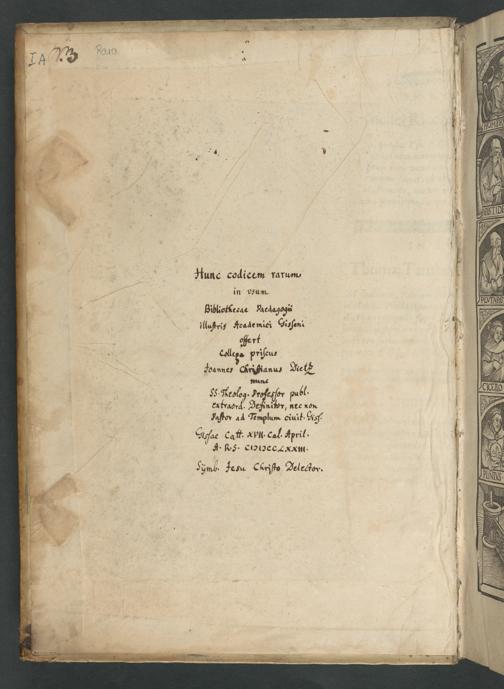 IA 23
Rara
Hunc codicem rarum
in vsum
Bibliothecae Paedagogii
illustris Academici Gisseni
offert
Collega priscus
Joannes Christianus Dietz
nunc
SS. Theolog. Professor publ.
extraord. Definitor, nec non
Pastor ad Templum civit. Giss.
Gissae Catt. XVII. Cal. April.
A. R. S. CIƆIƆCCLXXIII.
Symb. Jesu Christo Delector.
PLVTARC
CICERO